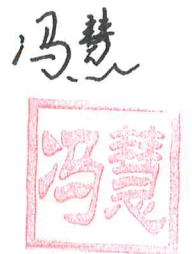 冯慧
冯慧